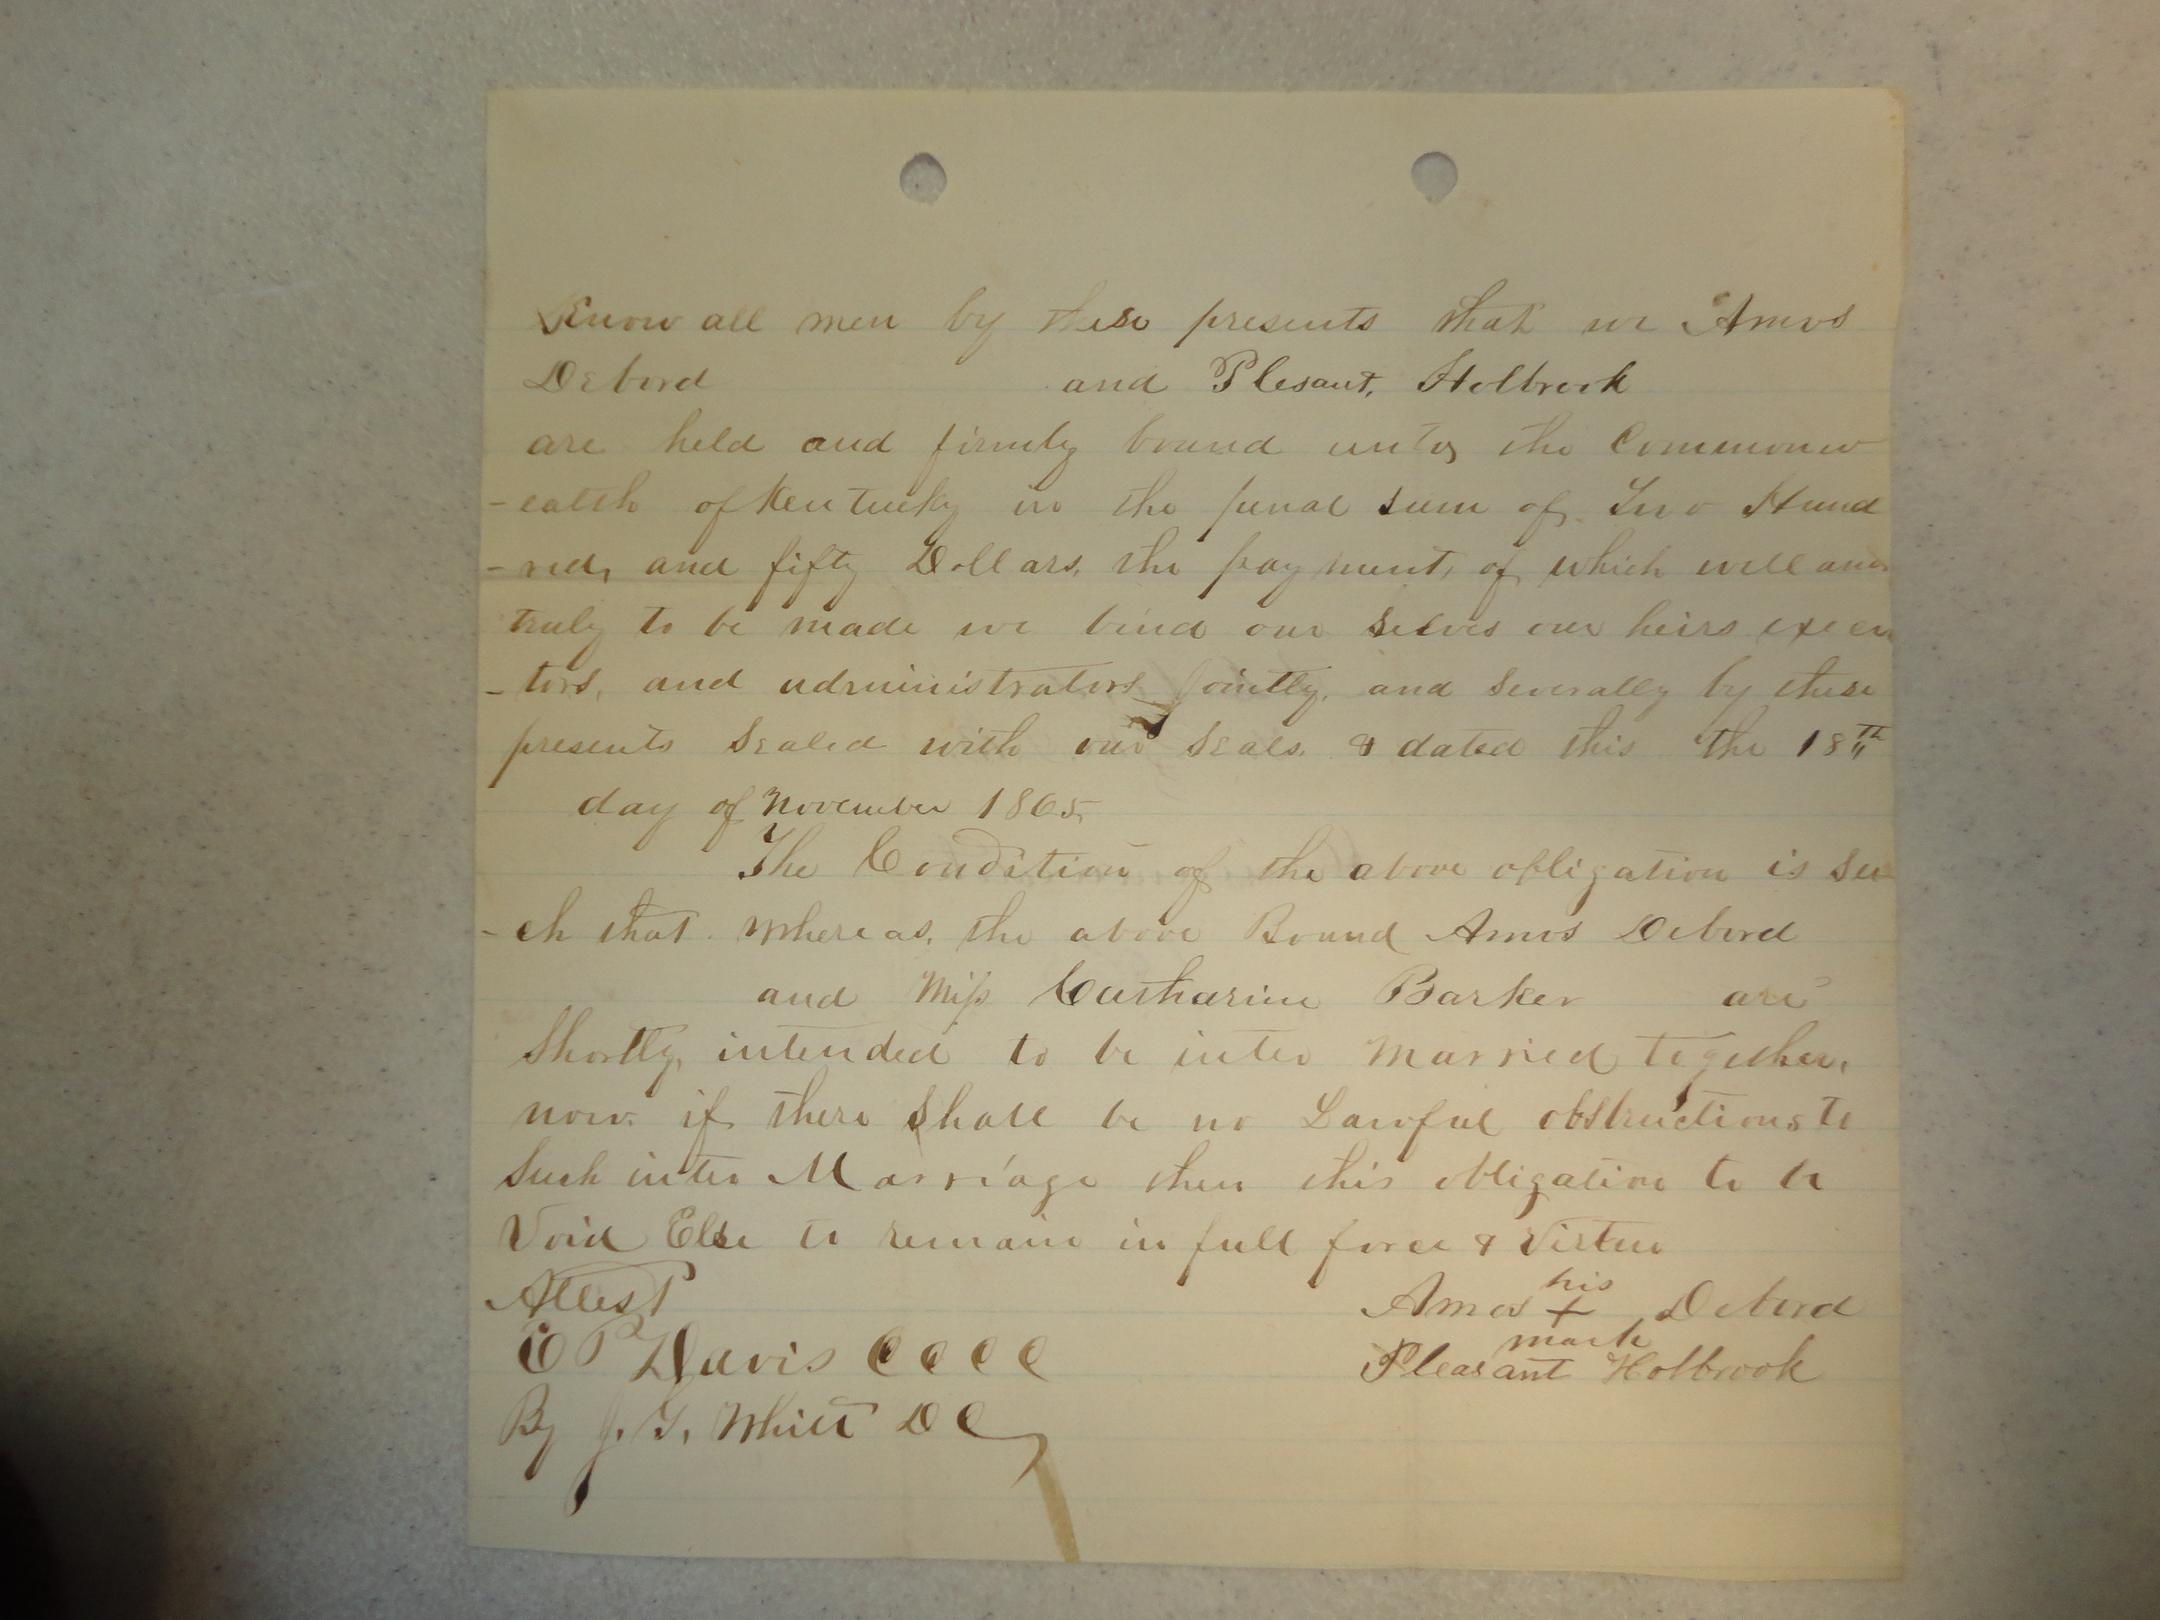 Know all men by these presents that we Amos
Debord and Plesant, Holbrook
are held and firmly bound unto the Commonw
-ealth of Kentucky in the penal sum of Two Hund
-red, and fifty Dollars, the payment, of which well and
truly to be made we bind our selves our heirs execu
-tors, and administrators jointly, and severally by these
presents Sealed with our Seals, & dated this the 18th
day of November 1865,
The Condition of the above obligation is su
-ch that whereas, the above Bound Amos Debord
and Miss Catharine Barker are
Shortly, intended to be inter Married together,
now. if there Shall be no Lawful obstructions to
Such inter Marriage then this obligation to be
Void Else to remain in full force & virtue
Attest
E P Davis C C C C
By J. T. Whitt D C
Amos his + mark Debord
Pleasant Holbrook